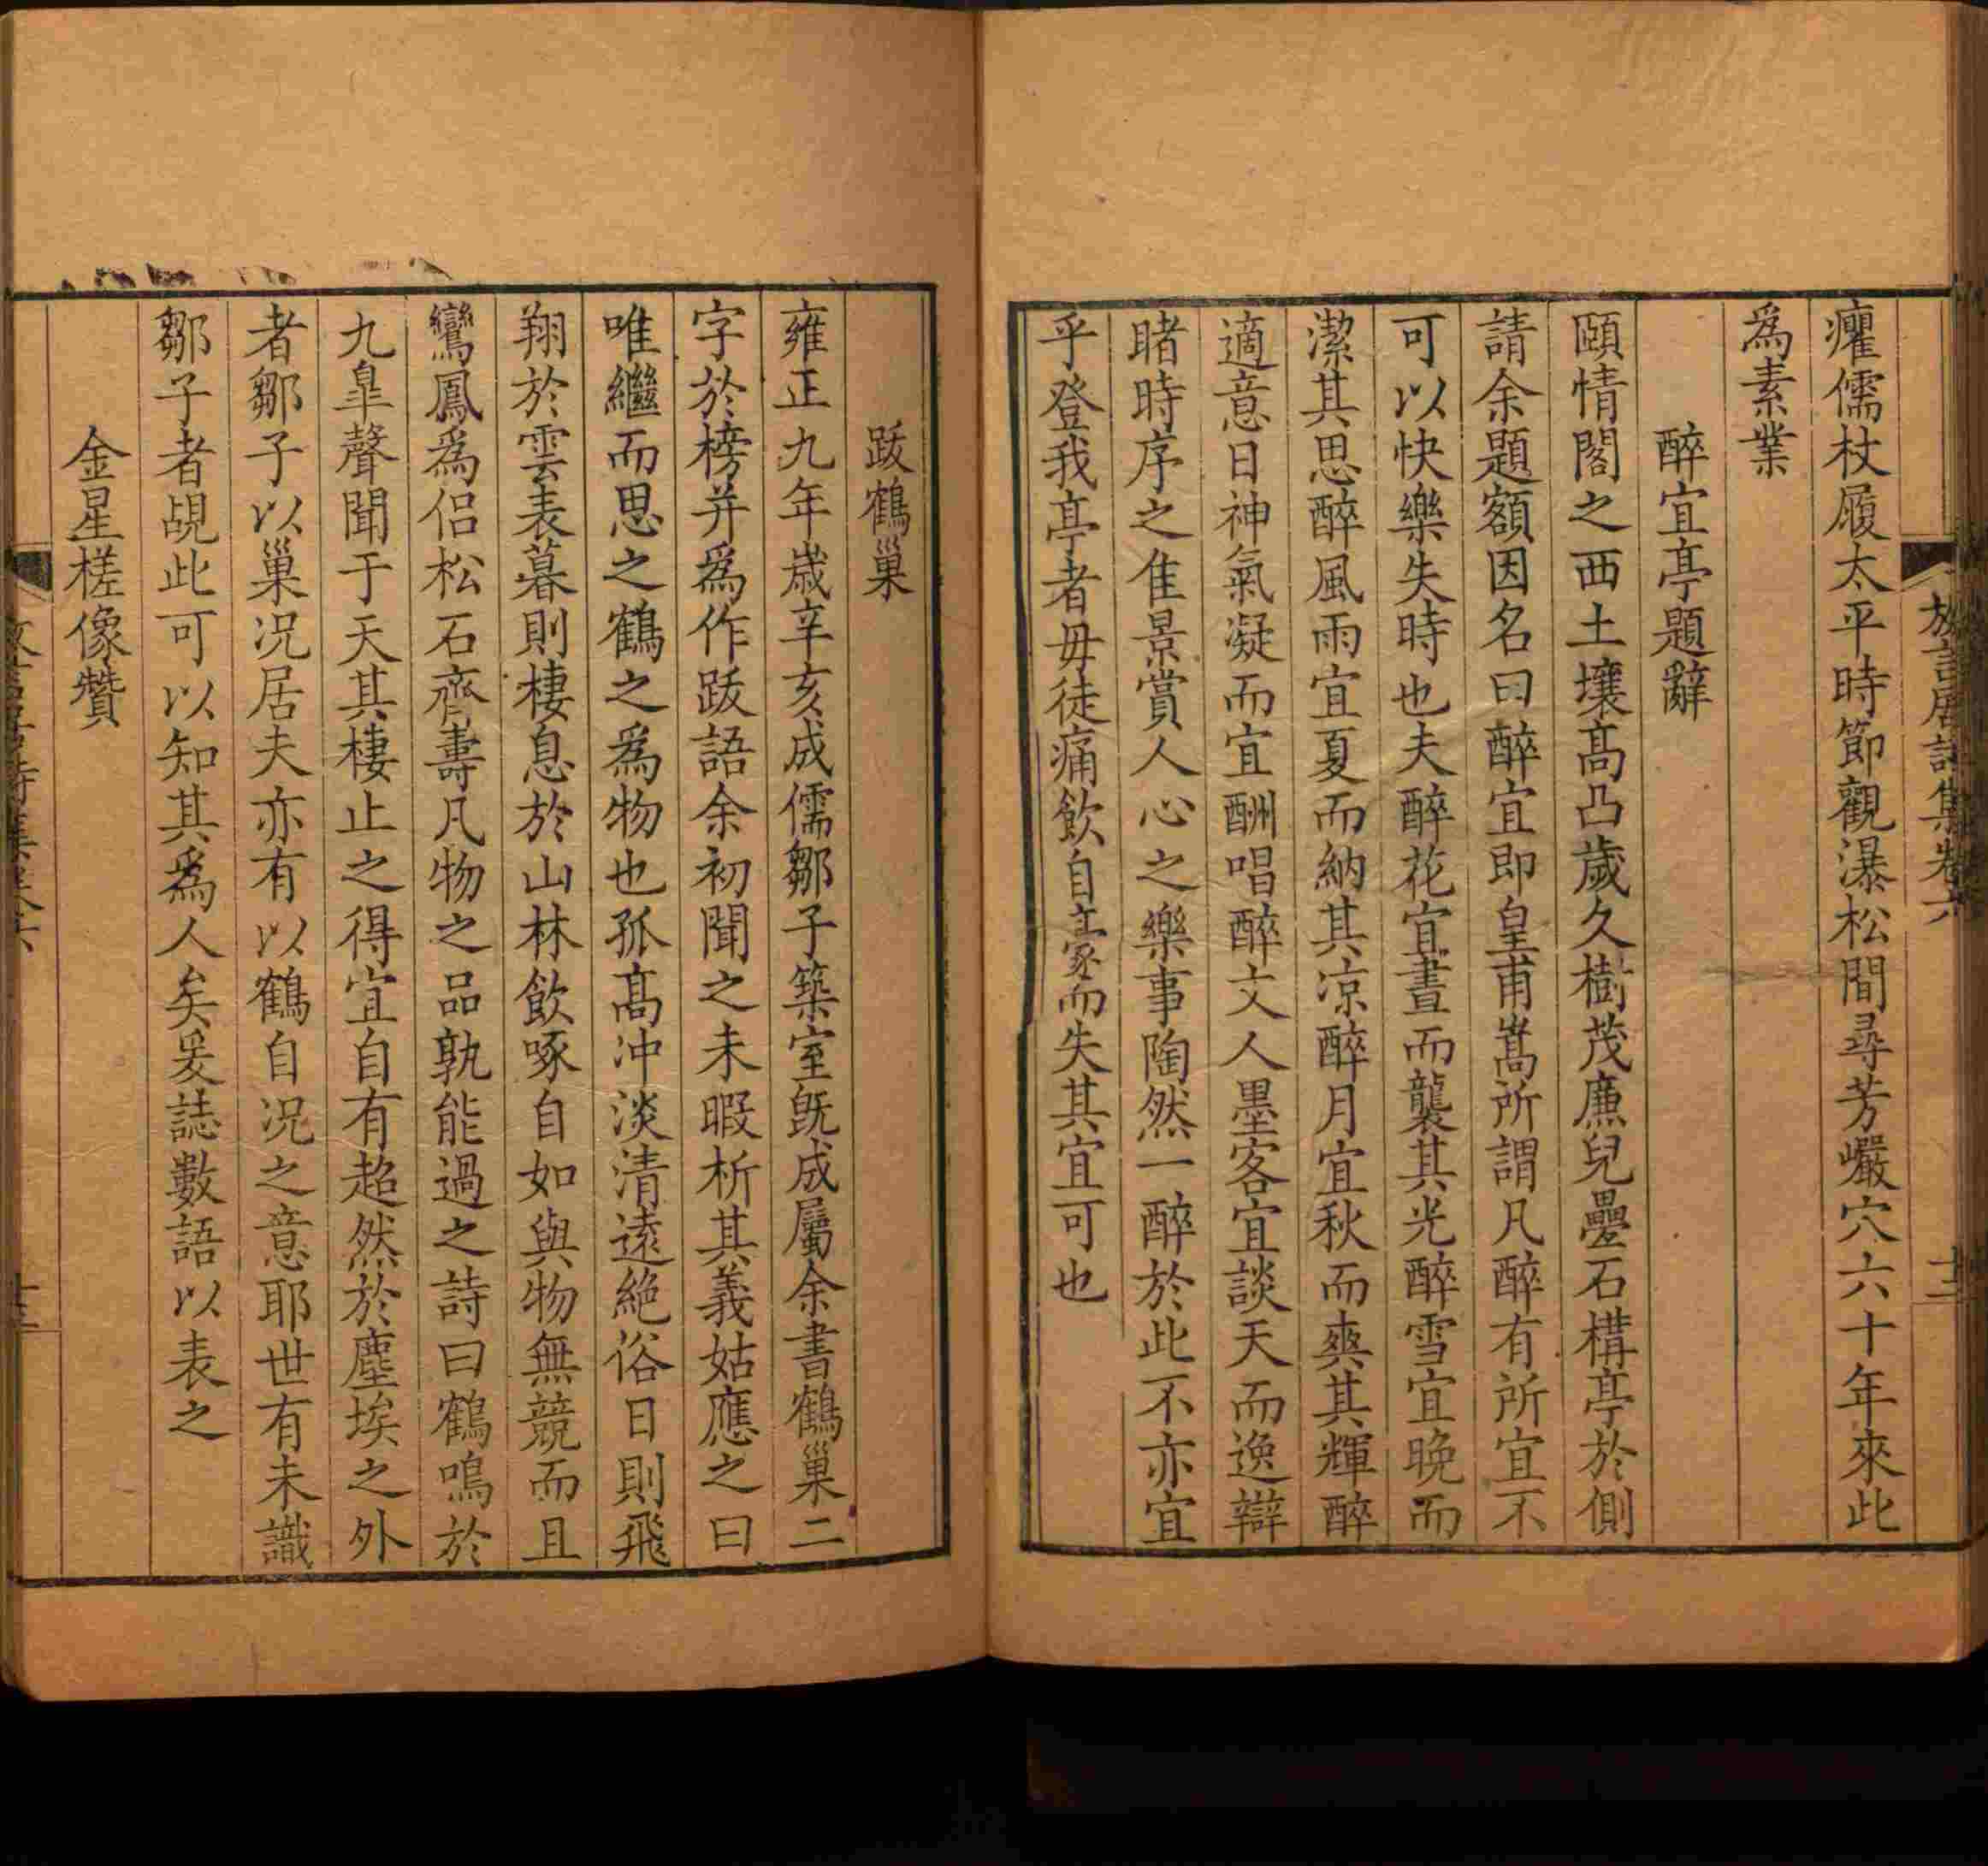 癯儒杖履太平時節觀瀑松間尋芳巖穴六十年來此
爲素業
醉宜亭題辭
頤情閣之西土壤髙凸歲久樹茂廡兒壘石構亭於側
請余題額因名曰醉宜即皇甫嵩所謂凡醉有所宜不
可以快樂失時也夫醉花宜晝而襲其光醉雪宜晚而
潔其思醉風雨宜夏而納其凉醉月宜秋而爽其輝醉
適意日神氣凝而宜酬唱醉文人墨客宜談天而逸辯
睹時序之隹景賞人心之樂事陶然一醉於此不亦宜
乎登我亭者毋徒痛飲自豪而失其宜可也
跋鶴巢
雍正九年歲辛亥成儒鄒子築室旣成屬余書鶴巢二
字於榜并爲作跋語余初聞之未暇析其義姑應之曰
唯繼而思之鶴之爲物也孤髙冲淡清遠絕俗日則飛
翔於雲表暮則棲息於山林飲啄自如與物無競而且
鸞鳳爲侣松石齊壽凡物之品孰能過之詩曰鶴鳴於
九臯聲聞于天其棲止之得宜自有超然於塵埃之外
者鄒子以巢况居夫亦有以鶴自况之意耶世有未識
鄒子者覘此可以知其爲人矣爰誌數語以表之
金星槎像贊